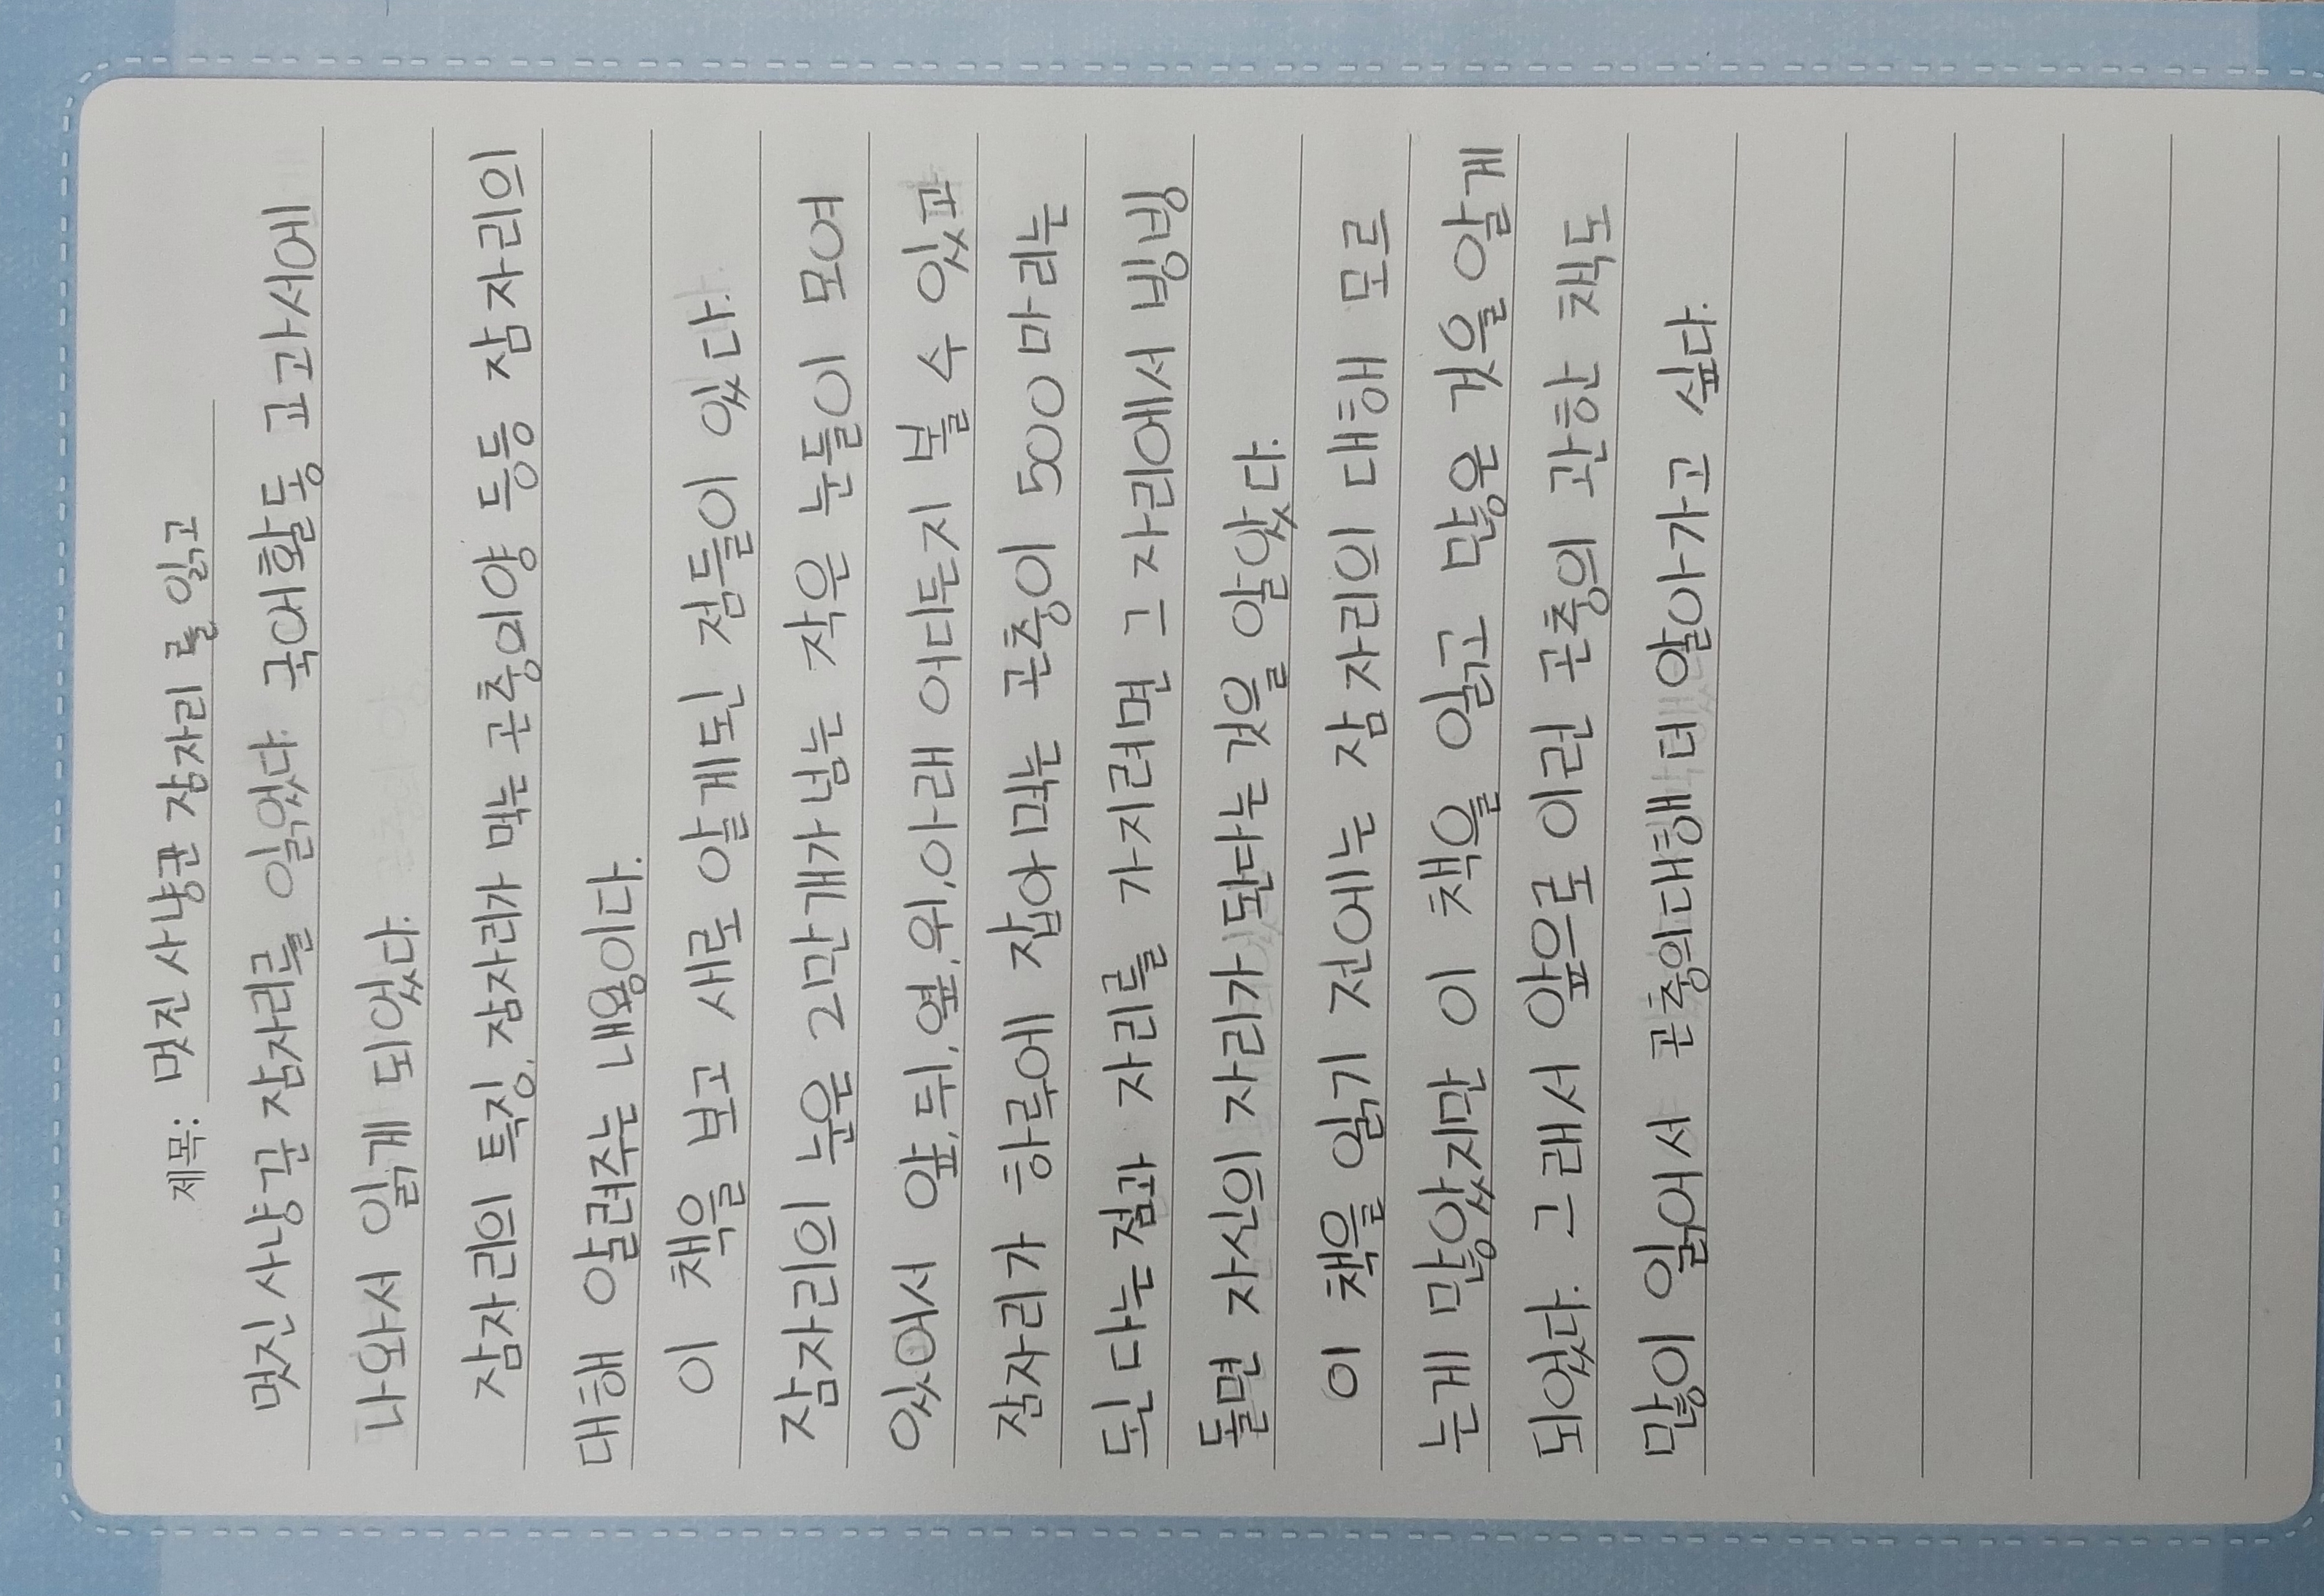 제목: 멋진 사냥꾼 잠자리 를 읽고
멋진 사냥꾼 잠자리를 읽었다. 국어활동 교과서에
나와서 읽게 되었다.
잠자리의 특징, 잠자리가 먹는 곤충의양 등등 잠자리의
대해 알려주는 내용이다.
이 책을 보고 새로 알게된 점들이 있다.
잠자리의 눈은 2만개가 넘는 작은 눈들이 모여
있어서 앞,뒤,옆,위,아래 어디든지 볼 수 있고
잠자리가 하루에 잡아먹는 곤충이 500마리는
된 다는점과 자리를 가지려면 그 자리에서 빙빙
돌면 자신의 자리가 돤다는것을 알았다.
이 책을 읽기 전에는 잠자리의 대해 모르
는게 많았지만 이 책을 읽고 많은 것을 알게
되었다. 그래서 앞으로 이런 곤충의 관한 책도
많이 읽어서 곤충의대해 더 알아가고 싶다.